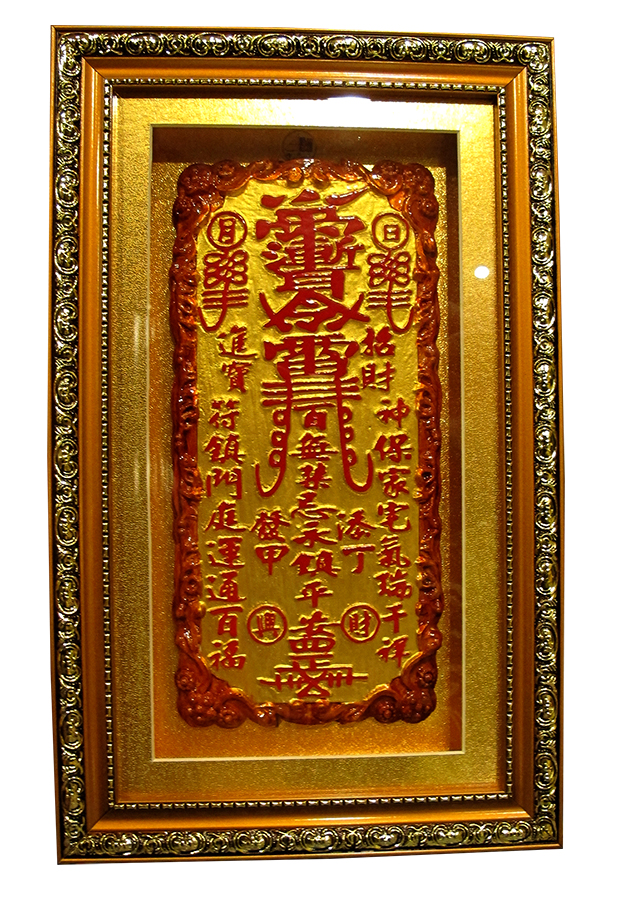 日
招財
神保家宅氣瑞千祥
添丁
財
百無禁忌永鎮平
發甲
興
月
進寶
符鎮門庭運通百福